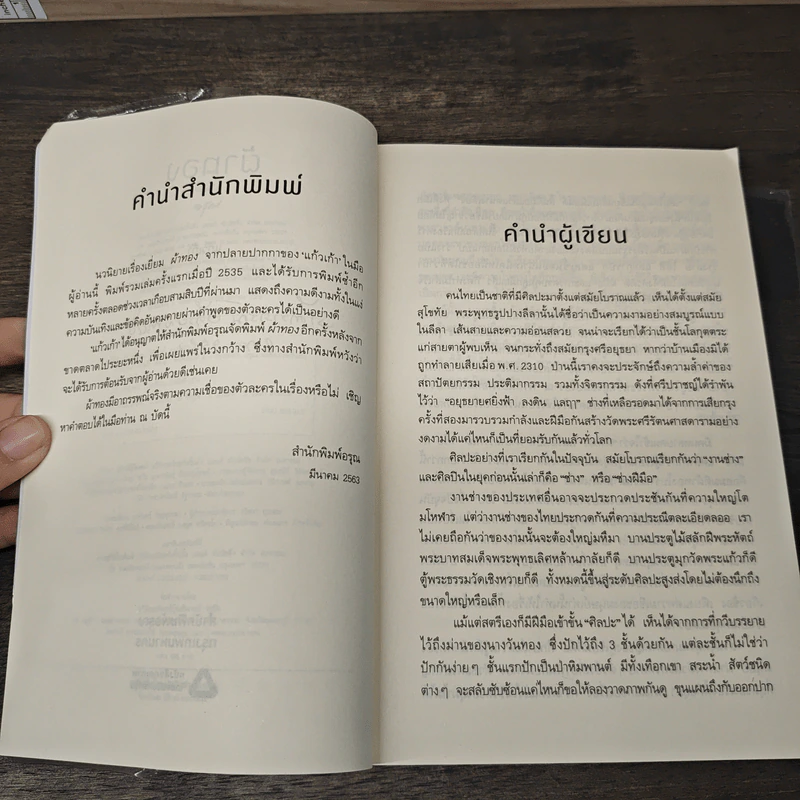 คำนำสำนักพิมพ์
นวนิยายเรื่องเยี่ยม ผ้าทอง จากปลายปากกาของ 'แก้วเก้า' ในมือ
ผู้อ่านนี้ พิมพ์รวมเล่มครั้งแรกเมื่อปี 2535 และได้รับการพิมพ์ซ้ำอีก
หลายครั้งตลอดช่วงเวลาเกือบสามสิบปีที่ผ่านมา แสดงถึงความดีงามทั้งในแง่
ความบันเทิงและข้อคิดอันคมคายผ่านคำพูดของตัวละครได้เป็นอย่างดี
'แก้วเก้า' ได้อนุญาตให้สำนักพิมพ์อรุณจัดพิมพ์ ผ้าทอง อีกครั้งหลังจาก
ขาดตลาดไประยะหนึ่ง เพื่อเผยแพร่ในวงกว้าง ซึ่งทางสำนักพิมพ์หวังว่า
จะได้รับการต้อนรับจากผู้อ่านด้วยดีเช่นเคย
ผ้าทองมีอาถรรพณ์จริงตามความเชื่อของตัวละครในเรื่องหรือไม่ เชิญ
หาคำตอบได้ในมือท่าน ณ บัดนี้
สำนักพิมพ์อรุณ
มีนาคม 2563
คำนำผู้เขียน
คนไทยเป็นชาติที่มีศิลปะมาตั้งแต่สมัยโบราณแล้ว เห็นได้ตั้งแต่สมัย
สุโขทัย พระพุทธรูปปางลีลานั้นได้ชื่อว่าเป็นความงามอย่างสมบูรณ์แบบ
ในลีลา เส้นสายและความอ่อนสลวย จนน่าจะเรียกได้ว่าเป็นชั้นโลกุตตระ
แก่สายตาผู้พบเห็น จนกระทั่งถึงสมัยกรุงศรีอยุธยา หากว่าบ้านเมืองมิได้
ถูกทำลายเสียเมื่อ พ.ศ. 2310 ป่านนี้เราคงจะประจักษ์ถึงความล้ำค่าของ
สถาปัตยกรรม ประติมากรรม รวมทั้งจิตรกรรม ดังที่ศรีปราชญ์ได้รำพัน
ไว้ว่า "อยุธยายศยิ่งฟ้า ลงดิน แลฤๅ" ช่างที่เหลือรอดมาได้จากการเสียกรุง
ครั้งที่สองมารวบรวมกำลังและฝีมือกันสร้างวัดพระศรีรัตนศาสดารามอย่าง
งดงามได้แค่ไหนก็เป็นที่ยอมรับกันแล้วทั่วโลก
ศิลปะอย่างที่เราเรียกกันในปัจจุบัน สมัยโบราณเรียกกันว่า "งานช่าง"
และศิลปินในยุคก่อนนั้นเล่าก็คือ "ช่าง" หรือ "ช่างฝีมือ"
งานช่างของประเทศอื่นอาจจะประกวดประชันกันที่ความใหญ่โต
มโหฬาร แต่ว่างานช่างของไทยประกวดกันที่ความประณีตละเอียดลออ เรา
ไม่เคยถือกันว่าของงามนั้นจะต้องใหญ่มหึมา บานประตูไม้สลักฝีพระหัตถ์
พระบาทสมเด็จพระพุทธเลิศหล้านภาลัยก็ดี บานประตูมุกวัดพระแก้วก็ดี
ตู้พระธรรมวัดเชิงหวายก็ดี ทั้งหมดนี้ขึ้นสู่ระดับศิลปะสูงส่งโดยไม่ต้องนึกถึง
ขนาดใหญ่หรือเล็ก
แม้แต่สตรีเองก็มีฝีมือเข้าขั้น "ศิลปะ" ได้ เห็นได้จากการที่กวีบรรยาย
ไว้ถึงม่านของนางวันทอง ซึ่งปักไว้ถึง 3 ชั้นด้วยกัน แต่ละชั้นก็ไม่ใช่ว่า
ปักกันง่ายๆ ชั้นแรกปักเป็นป่าหิมพานต์ มีทั้งเทือกเขา สระน้ำ สัตว์ชนิด
ต่างๆ จะสลับซับซ้อนแค่ไหนก็ขอให้ลองวาดภาพกันดู ขุนแผนถึงกับออกปาก